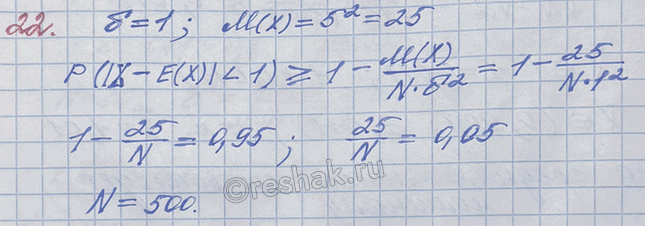 22. δ = 1; M(X) = 5² = 25
P(|X̄ - E(X)| < 1) ⩾ 1 - M(X)/(N·δ²) = 1 - 25/(N·1²)
1 - 25/N = 0,95; 25/N = 0,05
N = 500.
©reshak.ru